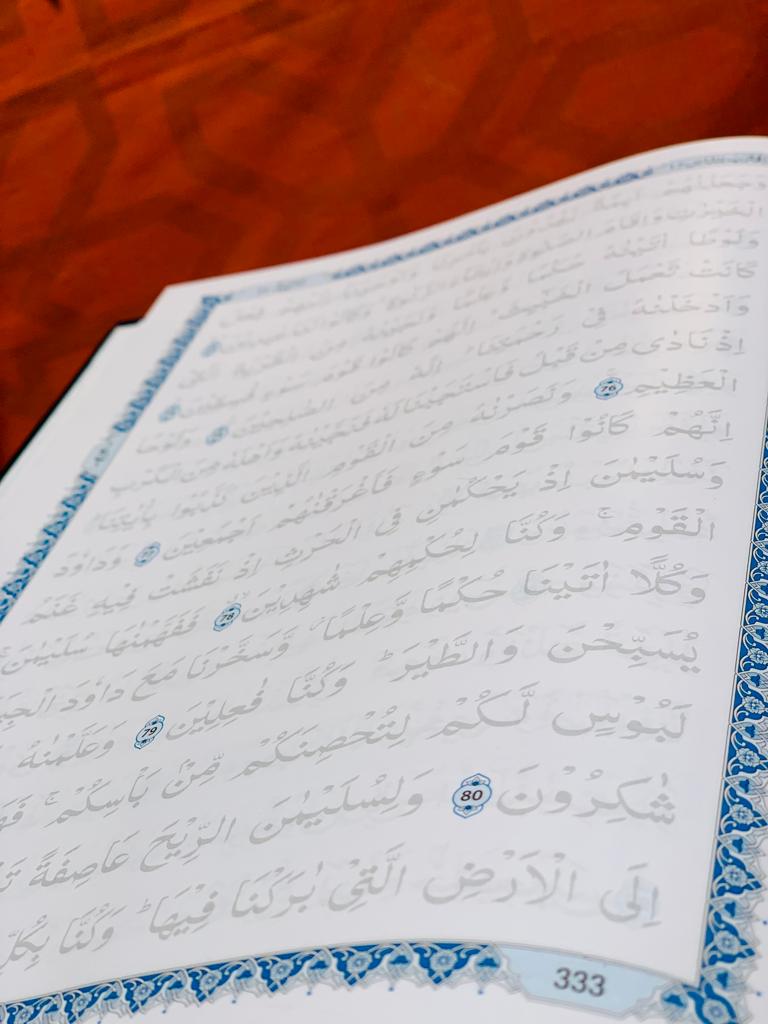 وَجَعَلْنٰهُمْ اَىِٕمَّةً يَّهْدُوْنَ بِاَمْرِنَا وَاَوْحَيْنَآ اِلَيْهِمْ فِعْلَ
الْخَيْرٰتِ وَاِقَامَ الصَّلٰوةِ وَاِيْتَآءَ الزَّكٰوةِ ۚ وَكَانُوْا لَنَا عٰبِدِيْنَ
وَلُوْطًا اٰتَيْنٰهُ حُكْمًا وَّعِلْمًا وَّنَجَّيْنٰهُ مِنَ الْقَرْيَةِ الَّتِيْ
كَانَتْ تَّعْمَلُ الْخَبٰٓىِٕثَ ۗ اِنَّهُمْ كَانُوْا قَوْمَ سَوْءٍ فٰسِقِيْنَ
وَاَدْخَلْنٰهُ فِيْ رَحْمَتِنَا ۗ اِنَّهٗ مِنَ الصّٰلِحِيْنَ 75 وَنُوْحًا
اِذْ نَادٰى مِنْ قَبْلُ فَاسْتَجَبْنَا لَهٗ فَنَجَّيْنٰهُ وَاَهْلَهٗ مِنَ الْكَرْبِ
الْعَظِيْمِ ۚ 76 وَنَصَرْنٰهُ مِنَ الْقَوْمِ الَّذِيْنَ كَذَّبُوْا بِاٰيٰتِنَا ۗ
اِنَّهُمْ كَانُوْا قَوْمَ سَوْءٍ فَاَغْرَقْنٰهُمْ اَجْمَعِيْنَ 77 وَدَاوٗدَ
وَسُلَيْمٰنَ اِذْ يَحْكُمٰنِ فِى الْحَرْثِ اِذْ نَفَشَتْ فِيْهِ غَنَمُ
الْقَوْمِ ۚ وَكُنَّا لِحُكْمِهِمْ شٰهِدِيْنَ ۙ 78 فَفَهَّمْنٰهَا سُلَيْمٰنَ ۚ
وَكُلًّا اٰتَيْنَا حُكْمًا وَّعِلْمًا ۖ وَّسَخَّرْنَا مَعَ دَاوٗدَ
يُسَبِّحْنَ وَالطَّيْرَ ۗ وَكُنَّا فٰعِلِيْنَ 79 وَعَلَّمْنٰهُ
لَبُوْسٍ لَّكُمْ لِتُحْصِنَكُمْ مِّنْۢ بَاْسِكُمْ ۚ
شٰكِرُوْنَ 80 وَلِسُلَيْمٰنَ الرِّيْحَ عَاصِفَةً
اِلَى الْاَرْضِ الَّتِيْ بٰرَكْنَا فِيْهَا ۗ وَكُنَّا بِكُلِّ
333